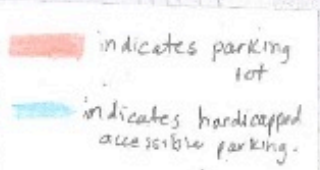 indicates parking
lot
indicates handicapped
accessible parking.